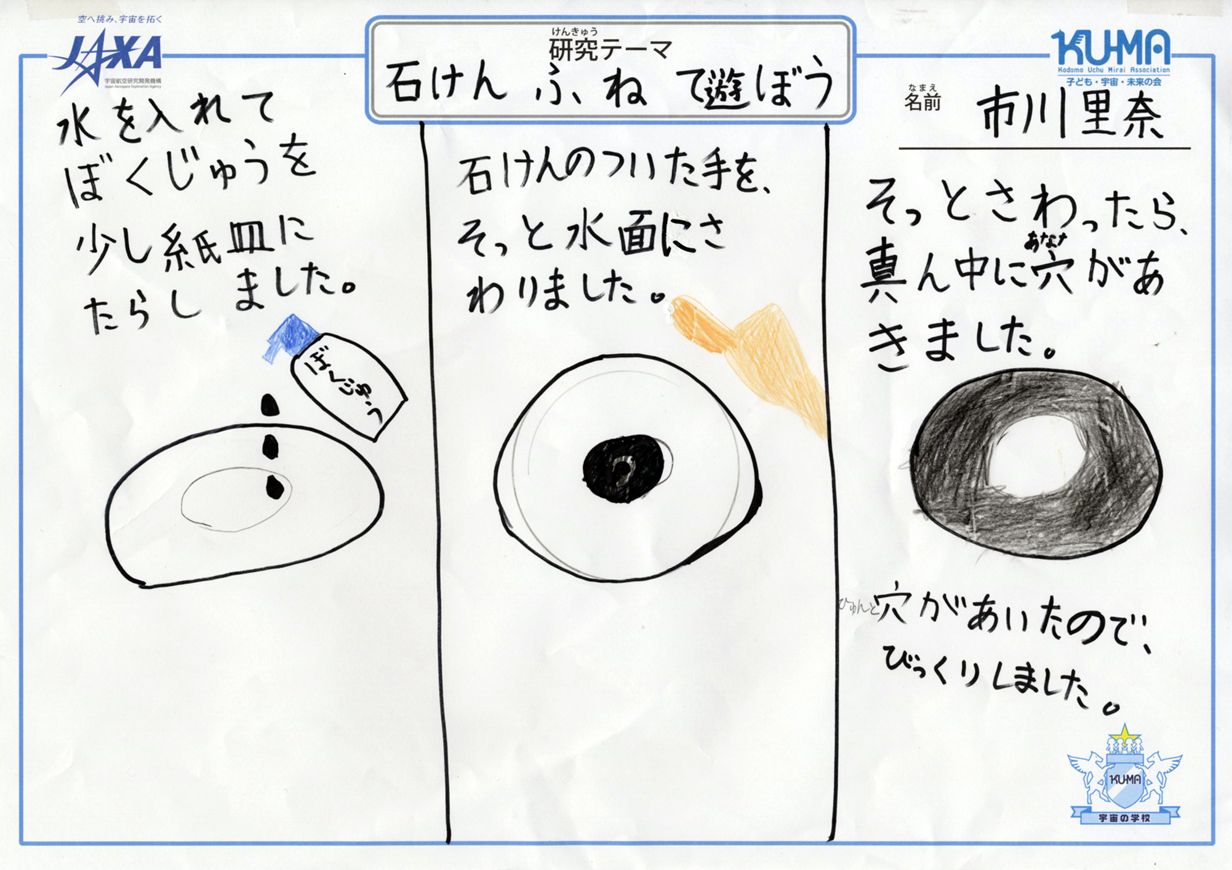 空へ挑み、宇宙を拓く
JAXA
宇宙航空研究開発機構
Japan Aerospace Exploration Agency
けんきゅう
研究テーマ
石けん ふね で遊ぼう
KU-MA
Kodomo Uchu Mirai Association
子ども・宇宙・未来の会
なまえ
名前
市川里奈
水を入れて
ぼくじゅうを
少し紙皿に
たらしました。
ぼくじゅう
石けんのついた手を、
そっと水面にさ
わりました。
そっとさわったら、
あなな
真ん中に穴があ
きました。
びゅんと穴があいたので、
びっくりしました。
KU-MA
宇宙の学校